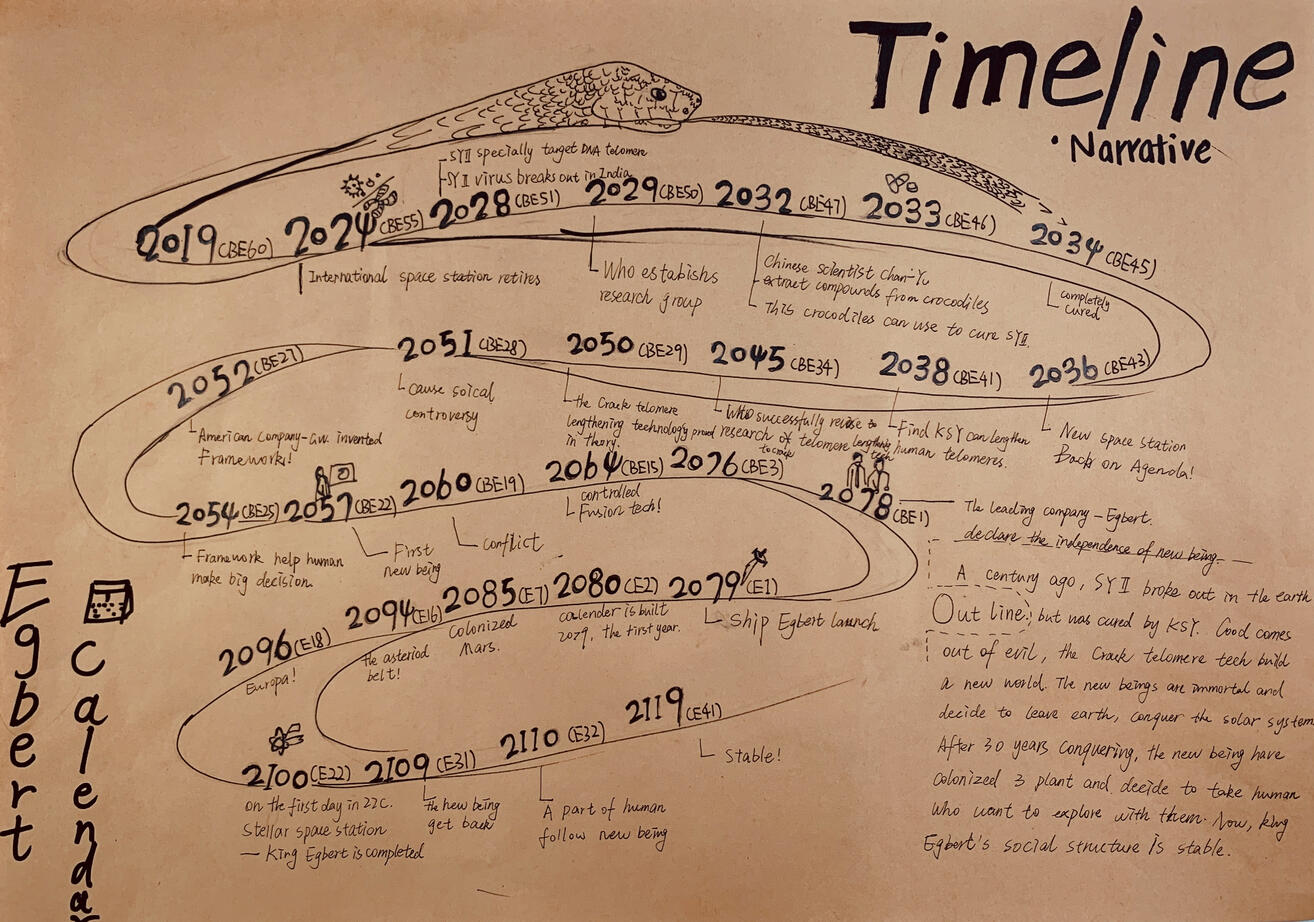 Timeline
• Narrative
SYⅡ specially target DNA telomere
SYⅡ virus breaks out in India
2019 (BE60)
2024 (BE55)
2028 (BE51)
2029 (BE50)
2032 (BE47)
2033 (BE46)
2034 (BE45)
International space station retires
Who estabishs
research group
Chinese scientist chan-Yu
extract compounds from crocodiles
This crocodiles can use to cure SYⅡ.
completely
cured
2052 (BE27)
2051 (BE28)
2050 (BE29)
2045 (BE34)
2038 (BE41)
2036 (BE43)
American Company-Gw. invented
Framework!
cause soical
controversy
the Crack telomere
lengthening technology proud
in theory.
Who successfully
research of telomere lengthening
to crack tech
Find KSY can lengthen
human telomeres.
New space station
Back on Agenda!
2054 (BE25)
2057 (BE22)
2060 (BE19)
2064 (BE15)
2076 (BE3)
2078 (BE1)
Framework help human
make big decision.
First
new being
conflict
controlled
Fusion tech!
The leading company - Egbert.
declare the independence of new being.
2096 (E18)
2094 (E16)
2085 (E7)
2080 (E2)
2079 (E1)
Europa!
the asteriod
belt!
Colonized
Mars.
calender is built
2079, the first year.
Ship Egbert launch
2100 (E22)
2109 (E31)
2110 (E32)
2119 (E41)
on the first day in 22C.
Stellar space station
— King Egbert is completed
the new being
get back
A part of human
follow new being
Stable!
Out line:
A century ago, SYⅡ broke out in the earth
but was cured by KSY. Good comes
out of evil, the Crack telomere tech build
a new world. The new beings are immortal and
decide to leave earth, conquer the solar system
After 30 years conquering, the new being have
Colonized 3 plant and decide to take human
who want to explore with them. Now, king
Egbert's social structure is stable.
Egbert
Calendar